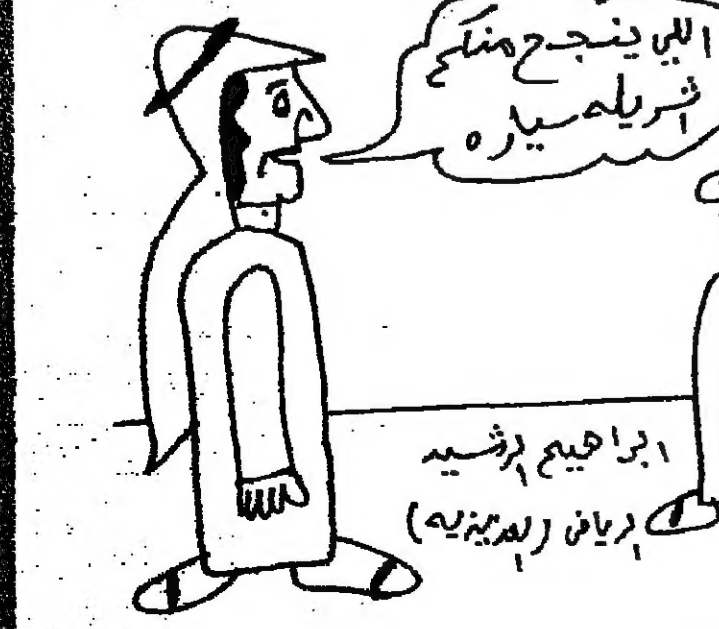 اللي ينجح منكم
اشريله سياره
ابراهيم الرشيد
الرياض (العزيزيه)